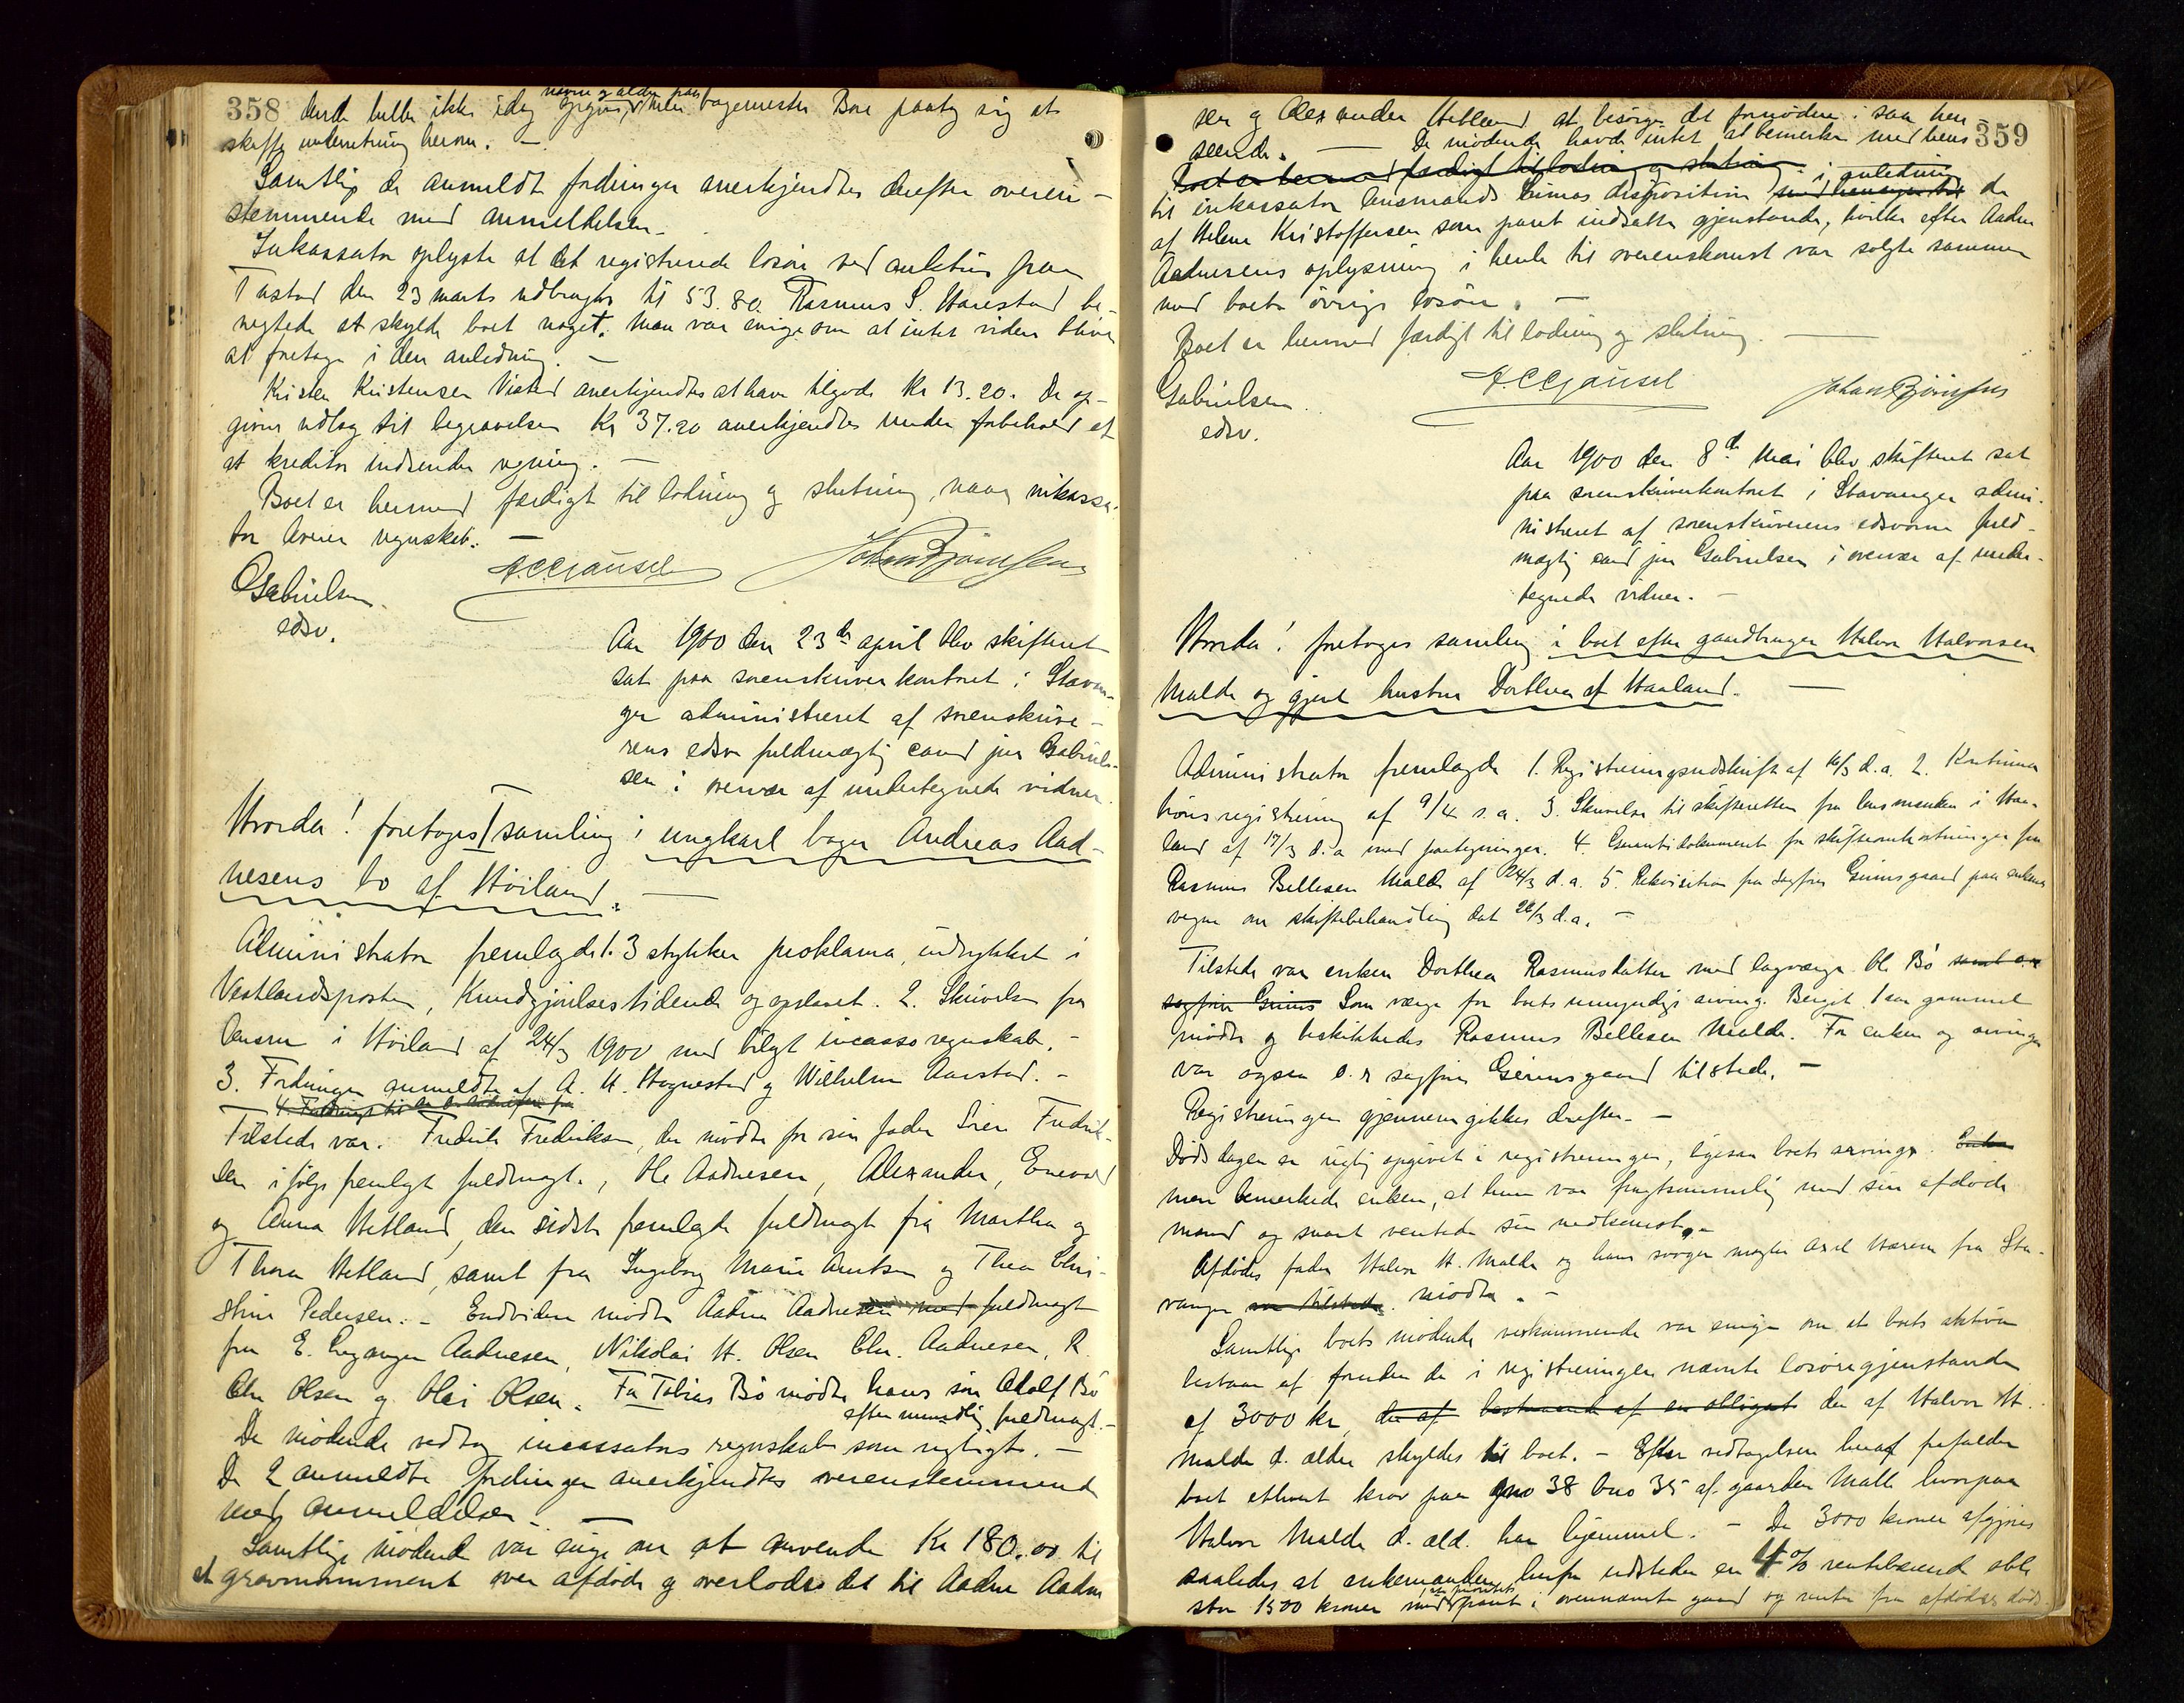 358
navn og alder paa
derde heller ikke idag opgives, men bagermester Boe paatog sig at
skaffe underretning herom. —
Samtlige de anmeldte fordringer anerkjendtes derefter overens-
stemmende med anmeldelsen.
Inkassator oplyste at det registrerede løsøre ved auktion paa
Tastad den 23 marts udbragtes til 53.80. Rasmus S. Harestad be-
negtede at skylde boet noget. Man var enige om at intet videre bliver
at foretage i den anledning. —
Kristen Kristensen Vistad anerkjendtes at have tilgode Kr 13.20. De op-
givne udlæg til begravelsen Kr 37.20 anerkjendtes under forbehold af
at kreditor indsender regning. —
Boet er hermed færdigt til lodning og slutning, naar inkassa-
tor leverer regnskab. —
Gabrielsen
edsv.
A.C.Gausel
Johan Bjørnsen
Aar 1900 den 23de april blev skifteret
sat paa sorenskriverkontoret i Stavan-
ger administreret af sorenskrive-
rens edsv fuldmægtig cand jur Gabriel-
sen i overvær af undertegnede vidner.
Hvorda! foretoges samling i ungkarl bager Andreas Aad-
nesens bo af Høiland. —
Administrator fremlagde 1. 3 stykker proklama, indrykket i
Vestlandsposten, Kundgjørelsestidende og opslaaet. 2. Skrivelse fra
lensm i Høiland af 24/3 1900 med bilagt incassoregnskab. -
3. Fordringer anmeldte af A. H. Hognestad og Wilhelm Aarstad. -
4. Fordring til
Tilstede var. Fredrik Fredriksen, der mødte for sin fader Sven Fredrik-
sen ifølge fremlagt fuldmagt, Ole Aadnesen, Alexander, Enevald
og Anna Hetland, den sidste fremlagde fuldmagt fra Martha og
Thora Hetland, samt fra Ingeborg Marie Amtsen og Thea Chri-
stine Pedersen. - Endvidere mødte Aadne Aadnesen med fuldmagt
fra E. Aadnesen, Nikolai H. Olsen Chr. Aadnesen, R.
Chr Olsen og Olai Olsen. For Tobias Bø mødte hans søn Adolf Bø
efter mundtlig fuldmagt. -
De mødende vedtog incassators regnskab som rigtigt. —
De 2 anmeldte fordringer anerkjendtes overenstemmende
med anmeldelsen. —
Samtlige mødende var enige om at anvende Kr 180.00 til
et gravmonument over afdøde og overlodes det til Aadne Aadne
359
sen og Alexander Hetland at besørge det fornødne i saa hen
seende. — De mødende havde intet at bemerke med hens
Boet er hermed færdigt til lodning og slutning. i anledning
til inkassator lensmand Simas disposition med hensyn til de
af Helene Kristoffersen som pant indsatte gjenstande, hvilke efter Aadne
Aadnesens oplysning i henh til overenskomst var solgte sammen
med boets øvrige løsøre. —
Boet er hermed færdigt til lodning og slutning. —
Gabrielsen
edsv.
A.C.Gausel
Johan Bjørnsen
Aar 1900 den 8de Mai blev skifteret sat
paa sorenskriverkontoret i Stavanger admi-
nistreret af sorenskriverens edsvorne fuld-
mægtig cand jur Gabrielsen i overvær af under-
tegnede vidner. —
Hvorda! foretoges samling i boet efter gaardbruger Halvor Halvorsen
Malde og gjenl hustru Dorthea af Haaland. —
Administrator fremlagde 1. Registreringsudskrift af 16/3 d.a. 2. Kontinua
tionsregistrering af 9/4 s.a. 3. Skrivelse til skifteretten fra lensmanden i Haa-
land af 17/3 d.a med paategninger. 4. Garantidokument for skifteomkostninger fra
Rasmus Bellesen Malde af 24/3 d.a. 5. Rekvisition fra sagfører Grimsgaard paa enkens
vegne om skiftebehandling dat 26/3 d.a. —
Tilstede var enken Dorthea Rasmusdatter med lagværge Ole Bø samt o.r
sagfører Grims Som værge for boets umyndige arving Bergit 1 aar gammel
mødte og beskikkedes Rasmus Bellesen Malde. For enken og arvingen
var ogsaa o.r sagfører Grimsgaard tilstede. —
Registreringen gjennemgikkes derefter. —
Dødsdagen er rigtig opgivet i registreringen, ligesaa boets arvinge. Enken
men bemerkede enken, at hun var frugtsommelig med sin afdøde
mand og snart ventede sin nedkomst. -
Afdødes fader Halvor H. Malde og hans svoger Axel Hareson fra Sta-
vanger var tilstede. mødte. -
Samtlige boets mødende vedkommende var enige om at boets aktiver
bestaar af foruden de i registreringen nævnte løsøregjenstande
af 3000 kr, der af bestaaende af en obligat der af Halvor H.
Malde d. ældre skyldes til boet. - Efter vedtagelsen heraf frafalder
boet ethvert krav paa gno 38 bno 35 af gaarden Malle hvorpaa
Halvor Malde d. æld. har hjemmel. - De 3000 kroner afgjøres
saaledes at enkemanden herfor udsteder en 4% rentebærend obli
stor 1500 kroner med pant i ovennævnte gaard og renter fra afdødes døds